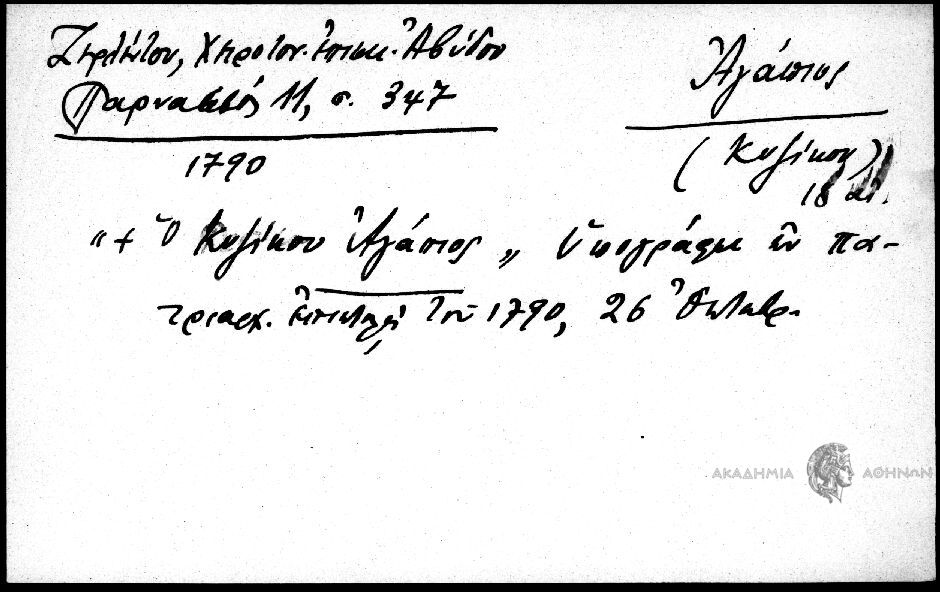 Ζερλέντου, Χειροτον. ἐπισκ. Ἀβύδου
Παρνασσός 11, σ. 347
1790
Ἀγάπιος
(Κυζίκου)
18 αἰ.
"+ Ὁ Κυζίκου Ἀγάπιος" ὑπογράφει ἐν πα-
τριαρχ. ἐπιστολῇ τοῦ 1790, 26 Ὀκτωβρ.
ΑΚΑΔΗΜΙΑ ΑΘΗΝΩΝ